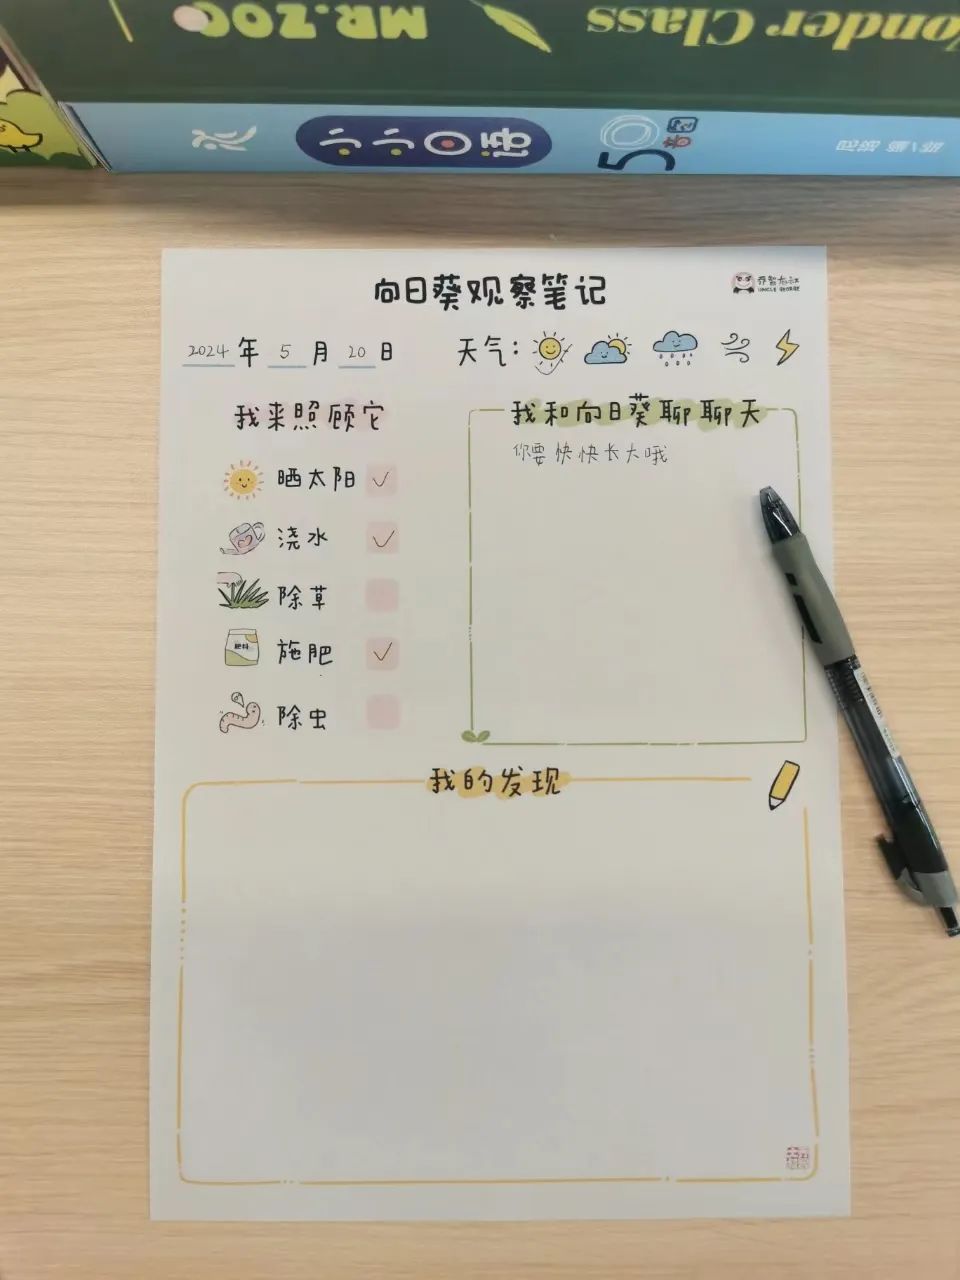 MR.ZOO
Wonder Class
向日葵观察笔记
乔智叔叔
UNCLE GEORGE
2024年5月20日
天气:
我来照顾它
晒太阳 ✓
浇水 ✓
除草
肥料
施肥 ✓
除虫
我和向日葵聊聊天
你要快快长大哦
我的发现